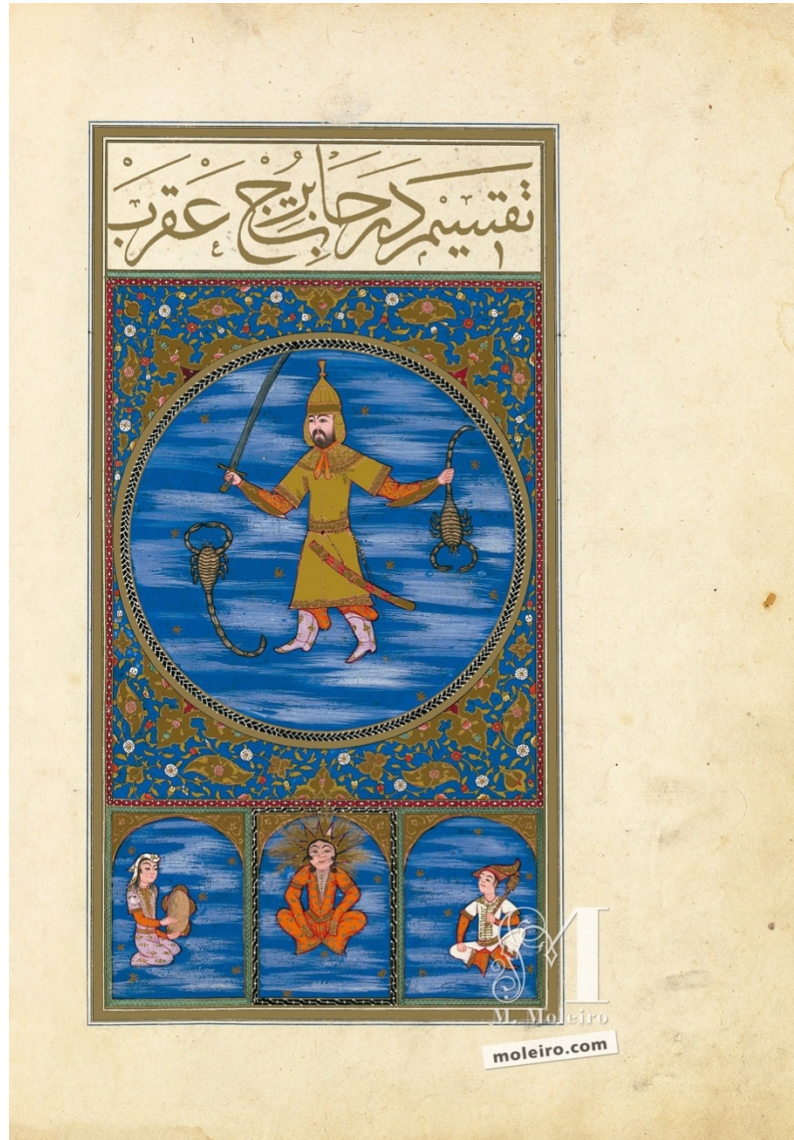 تقسيم درجات برج عقرب
M. Moleiro
moleiro.com